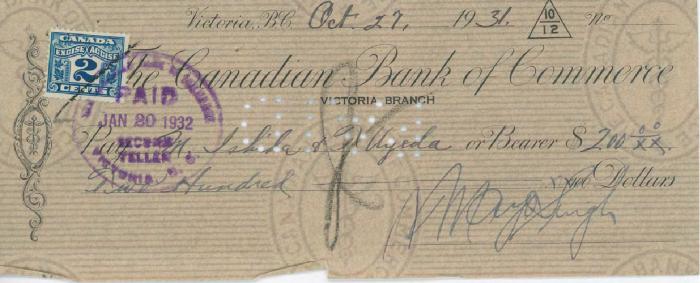 Victoria, B.C. Oct. 27, 1931. 10/12 No
CANADA
EXCISE ACCISE
2
CENTS
The Canadian Bank of Commerce
VICTORIA BRANCH
PAID
JAN 20 1932
TELLER
VICTORIA B.C.
Pay M. Ishida & Uyeda or Bearer $200 00/xx
Two Hundred Dollars
Singh